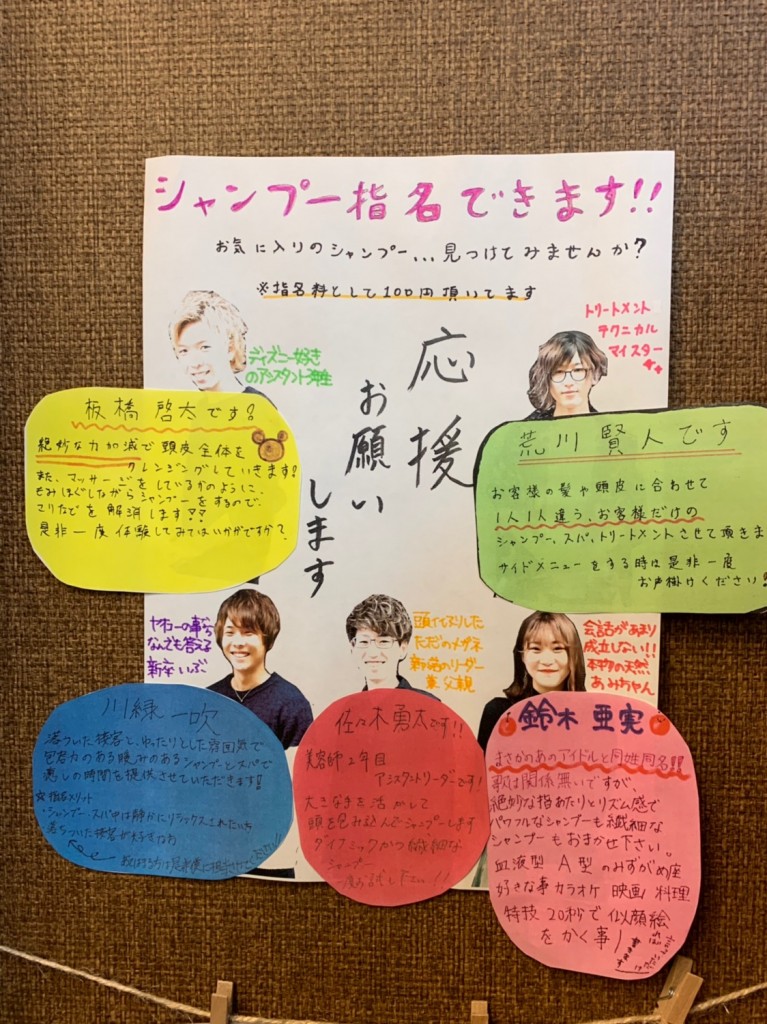 シャンプー指名できます!!
お気に入りのシャンプー...見つけてみませんか?
※指名料として100円頂いてます
応援
お願い
します
ディズニー好き
のアシスタント先生
トリートメント
テクニカル
マイスター
板橋 啓太です!
絶妙な力加減で頭皮全体を
クレンジングしていきます!
また、マッサージをしているかのように、
もみほぐしながらシャンプーをするので、
コリなどを解消します??
是非一度体験してみてはいかがですか?
荒川 賢人です
お客様の髪や頭皮に合わせて
1人1人違う、お客様だけの
シャンプー、スパ、トリートメントさせて頂きま
サイドメニューをする時は是非一度
お声掛けください!
なんでも答える
新卒いぶ
ただのメガネ
リーダー
兼父親
会話があまり
成立しない!!
本物の天然
あみちゃん
川緑 一吹
落ついた接客と、ゆったりとした雰囲気で
包容力のある暖かみのあるシャンプーとスパで
癒しの時間を提供させていただきます!!
指名メリット
・シャンプー・スパ中は静かにリラックスされたい方
落ちついた接客が大好きな方
佐々木勇太です!!
美容師2年目
アシスタントリーダーです!
大きな手を活かして
頭を包み込んでシャンプーします
ダイナミックかつ繊細な
シャンプー
一度お試し下さい!!
鈴木 亜実
まさかのあのアイドルと同姓同名!!
歌は関係無いですが、
絶妙な指あたりとリズム感で
パワフルなシャンプーも繊細な
シャンプーもおまかせ下さい。
血液型 A型のみずがめ座
好きな事 カラオケ 映画 料理
特技 20秒で似顔絵
をかく事!